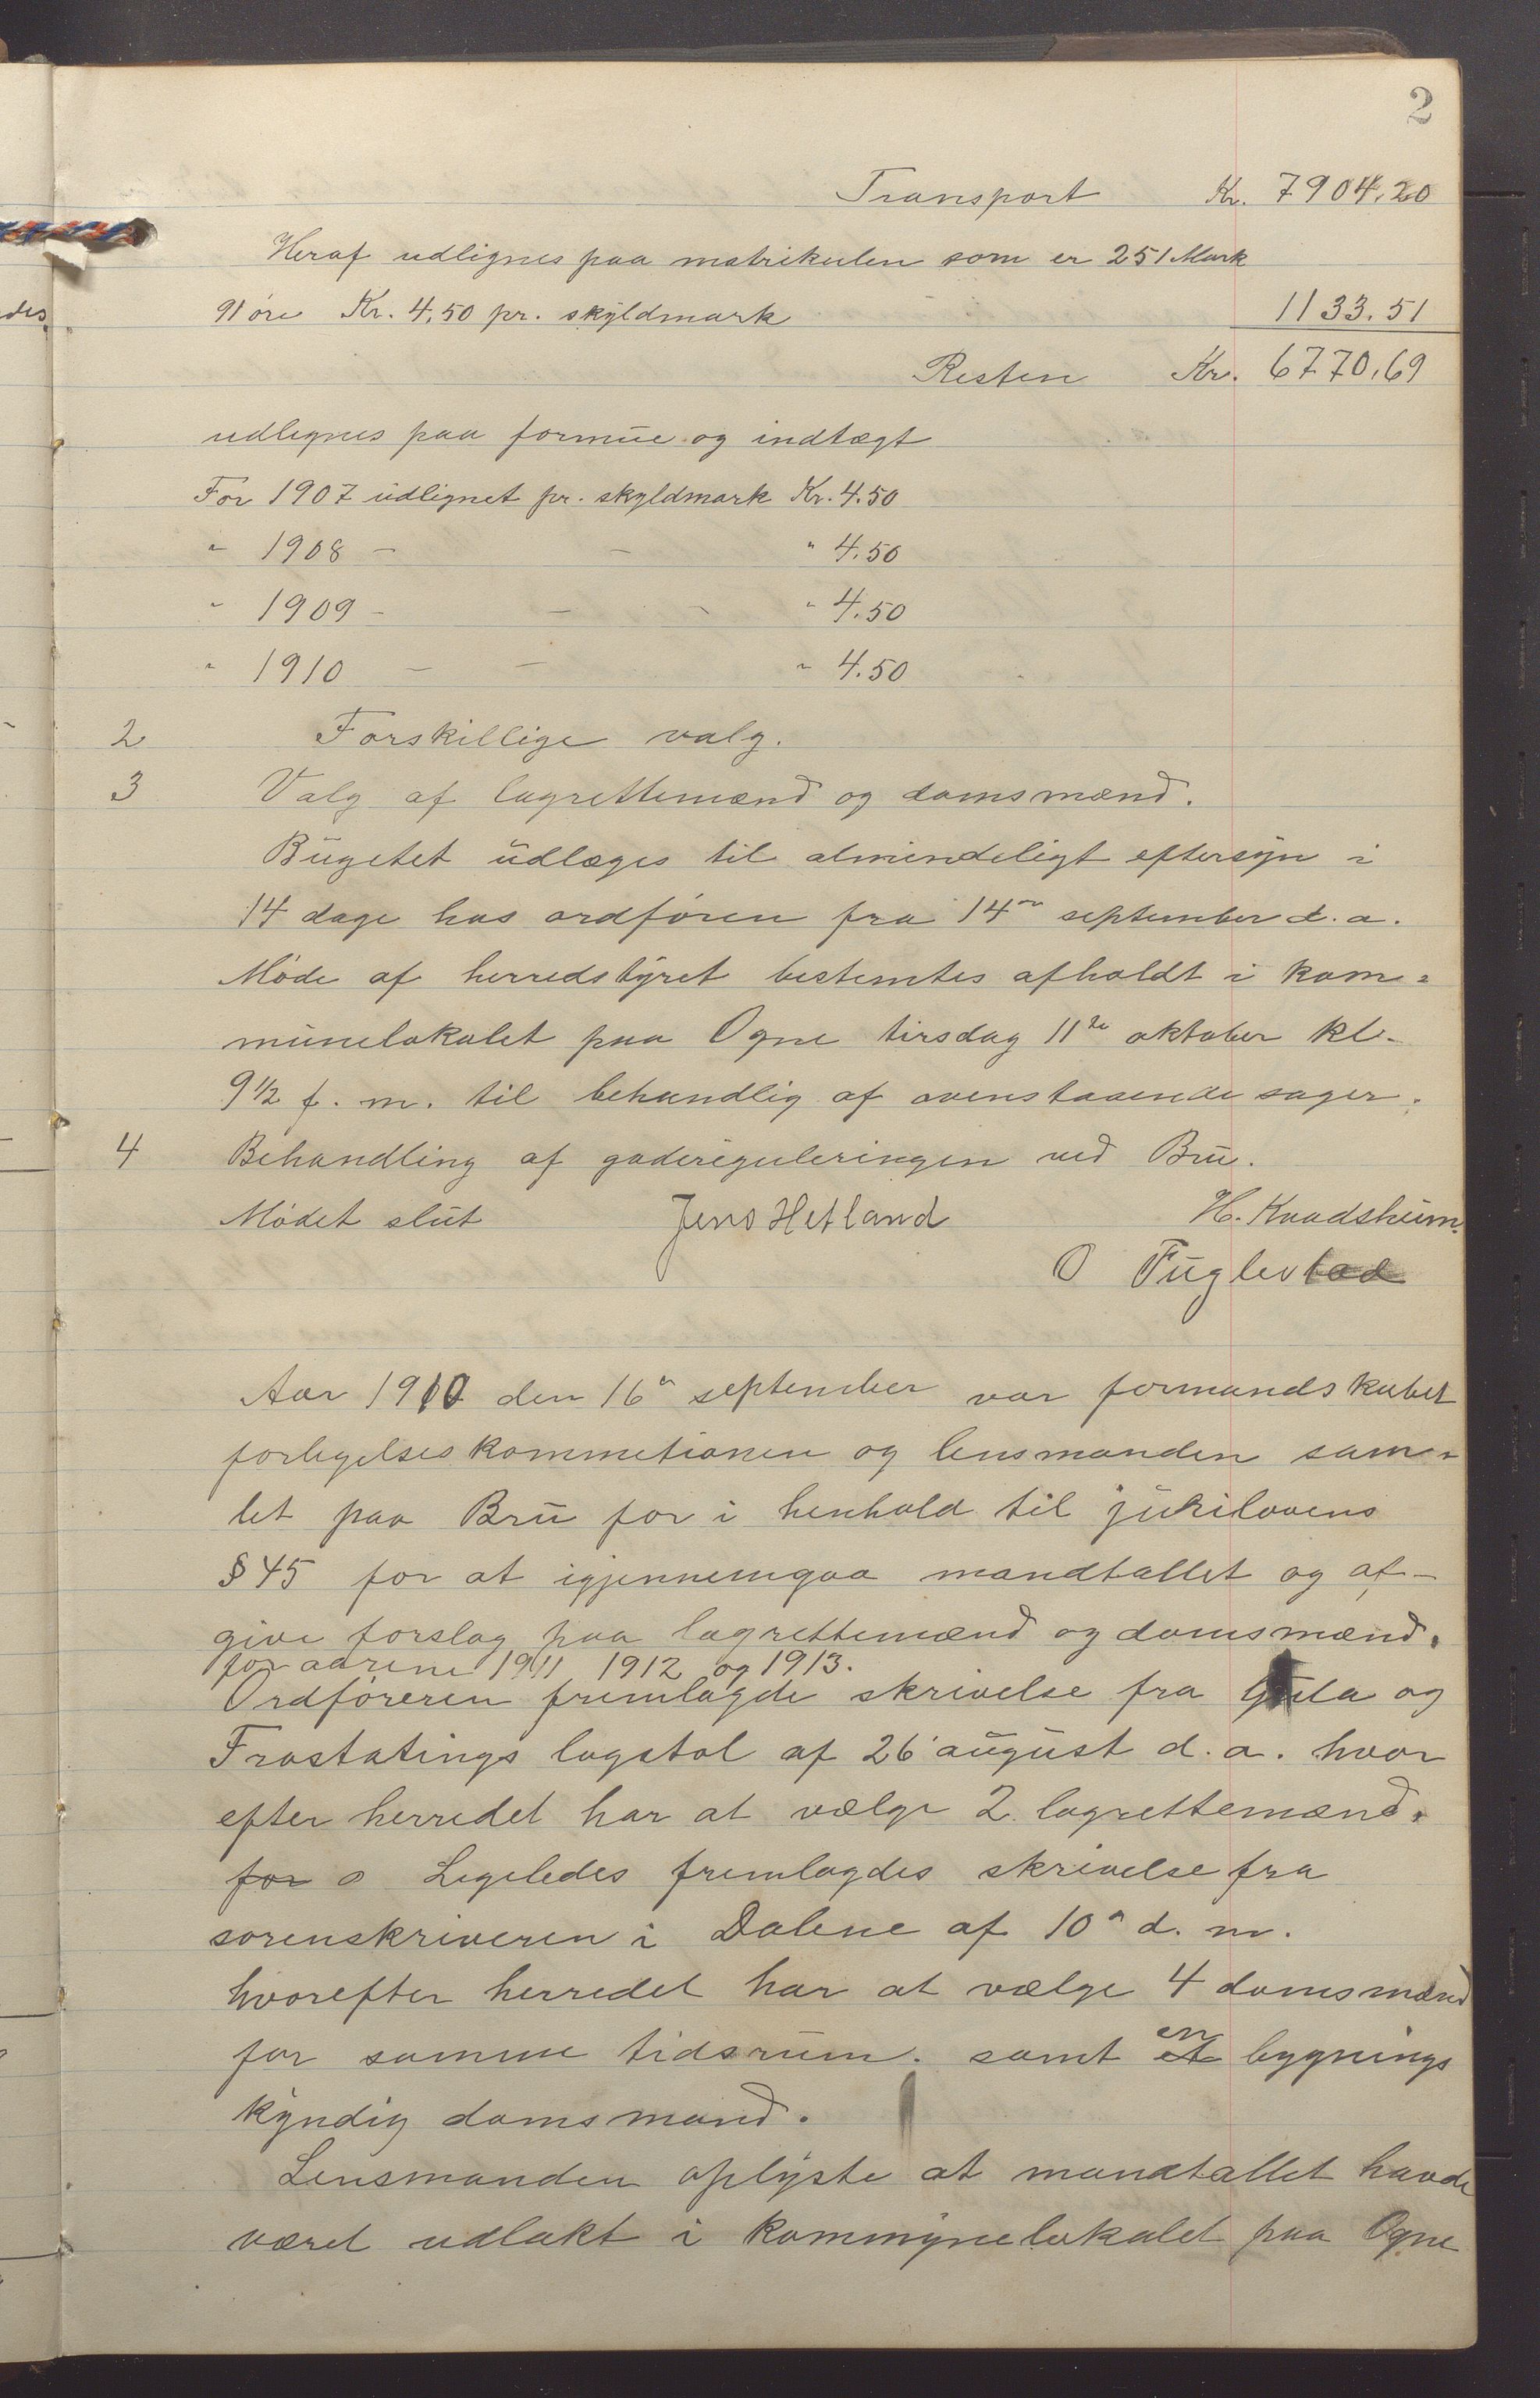 2
Transport Kr. 7904,20
Heraf udlignes paa matrikulen som er 251 Mark
91 öre Kr. 4,50 pr. skyldmark 1133.51
Resten Kr. 6770,69
udlignes paa formue og indtægt
For 1907 udlignet pr. skyldmark Kr. 4.50
" 1908 - - " 4.50
" 1909 - - - " 4.50
" 1910 - - " 4.50
2 Forskillige valg.
3 Valg af lagrettemænd og domsmænd.
Bugetet udlæges til almindeligt eftersyn i
14 dage hos ordfören fra 14de september d. a.
Möde af herredstyret bestemtes afholdt i kom=
munelokalet paa Ogne tirsdag 11te oktober kl.
9 1/2 f. m. til behandlig af ovenstaaende sager.
4 Behandling af gadereguleringen ved Bru.
Mödet slut Jens Hetland H. Kvadsheim.
O Fuglestad
Aar 1910 den 16de september var formandskabet
forligelseskommetionen og lensmanden sam=
let paa Bru for i henhold til jurilovens
§ 45 for at igjennemgaa mandtallet og af-
give forslag paa lagrettemænd og domsmænd.
for aarene 1911 1912 og 1913.
Ordföreren fremlagde skrivelse fra Gula og
Frostatings lagstol af 26 august d. a. hvor
efter herredet har at vælge 2 lagrettemænd.
for Ligeledes fremlagdes skrivelse fra
sorenskriveren i Dalene af 10de d. m.
hvorefter herredet har at vælge 4 domsmænd
for samme tidsrum. samt et en bygnings
kyndig domsmand.
Lensmanden oplyste at mandtallet havde
været udlakt i kommynelokalet paa Ogne